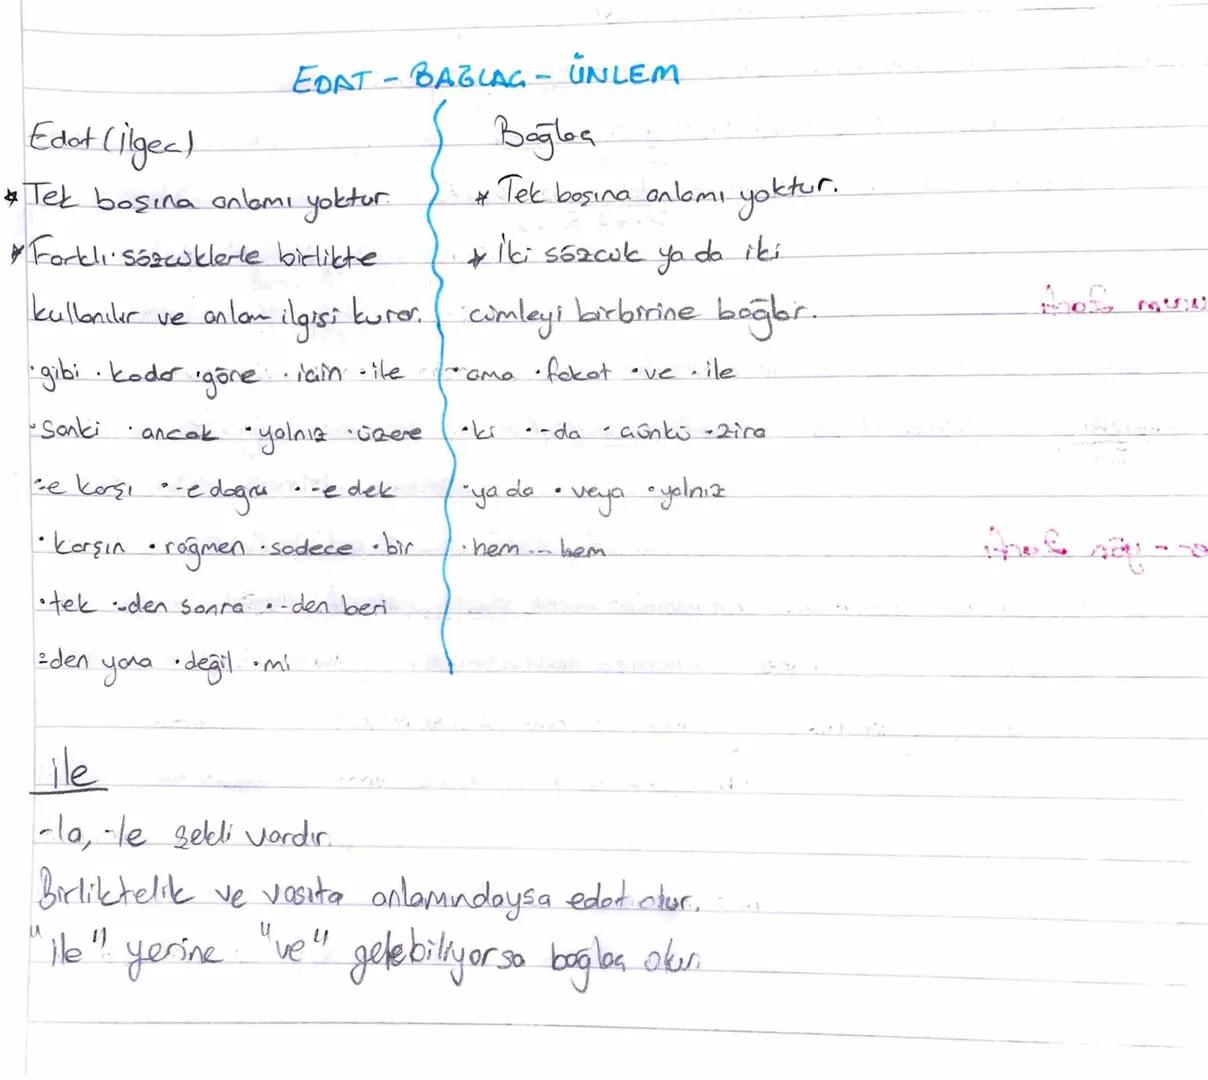 EDAT - BAĞLAÇ - ÜNLEM
Edat (ilgeç)
* Tek başına anlamı yoktur.
* Farklı sözcüklerle birlikte
kullanılır ve anlam ilgisi kurar.
• gibi • kadar • göre • için • ile
• Sanki • ancak • yalnız • üzere
• -e karşı • -e doğru • -e dek
• karşın • rağmen • sadece • bir
• tek • -den sonra • -den beri
• -den yana • değil • mi
Bağlaç
* Tek başına anlamı yoktur.
* İki sözcük ya da iki
cümleyi birbirine bağlar.
• ama • fakat • ve • ile
• ki • -da • çünkü • zira
• ya da • veya • yalnız
• hem ... hem
ile
-la, -le şekli vardır.
Birliktelik ve vasıta anlamındaysa edat olur.
"ile" yerine "ve" gelebiliyorsa bağlaç olur.